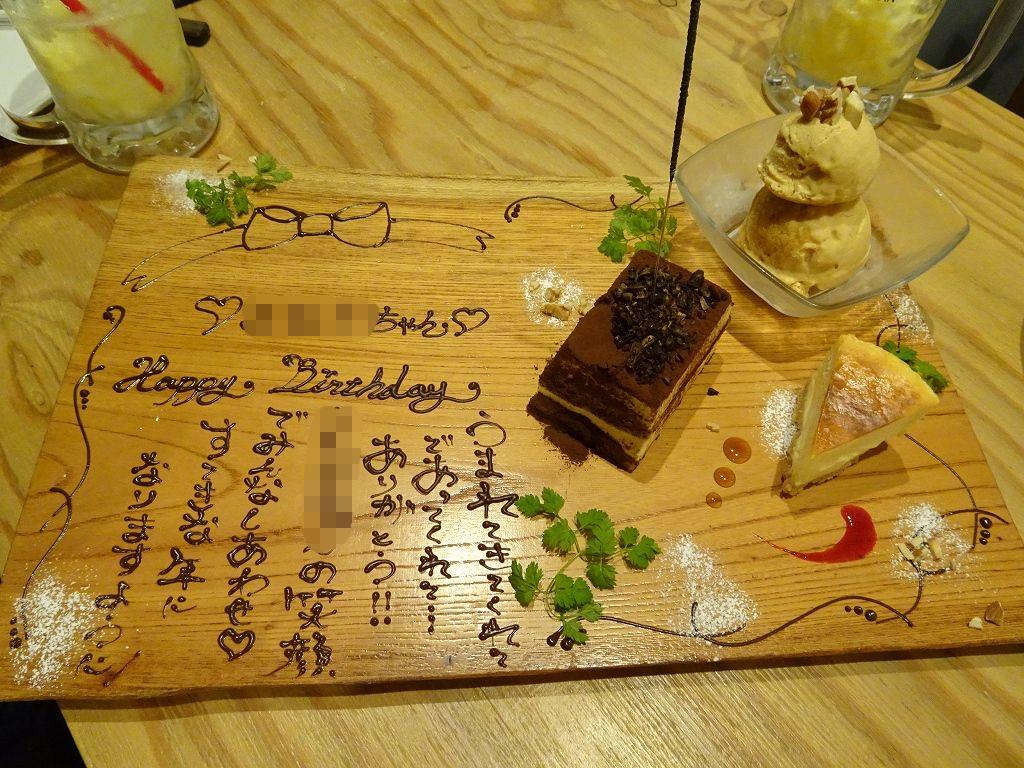 ♡ ちゃん♡
Happy Birthday
うまれてきてくれて
であってくれて…
ありがとう!!
の笑顔
でみんなしあわせ♡
すてきな1年に
なりますように